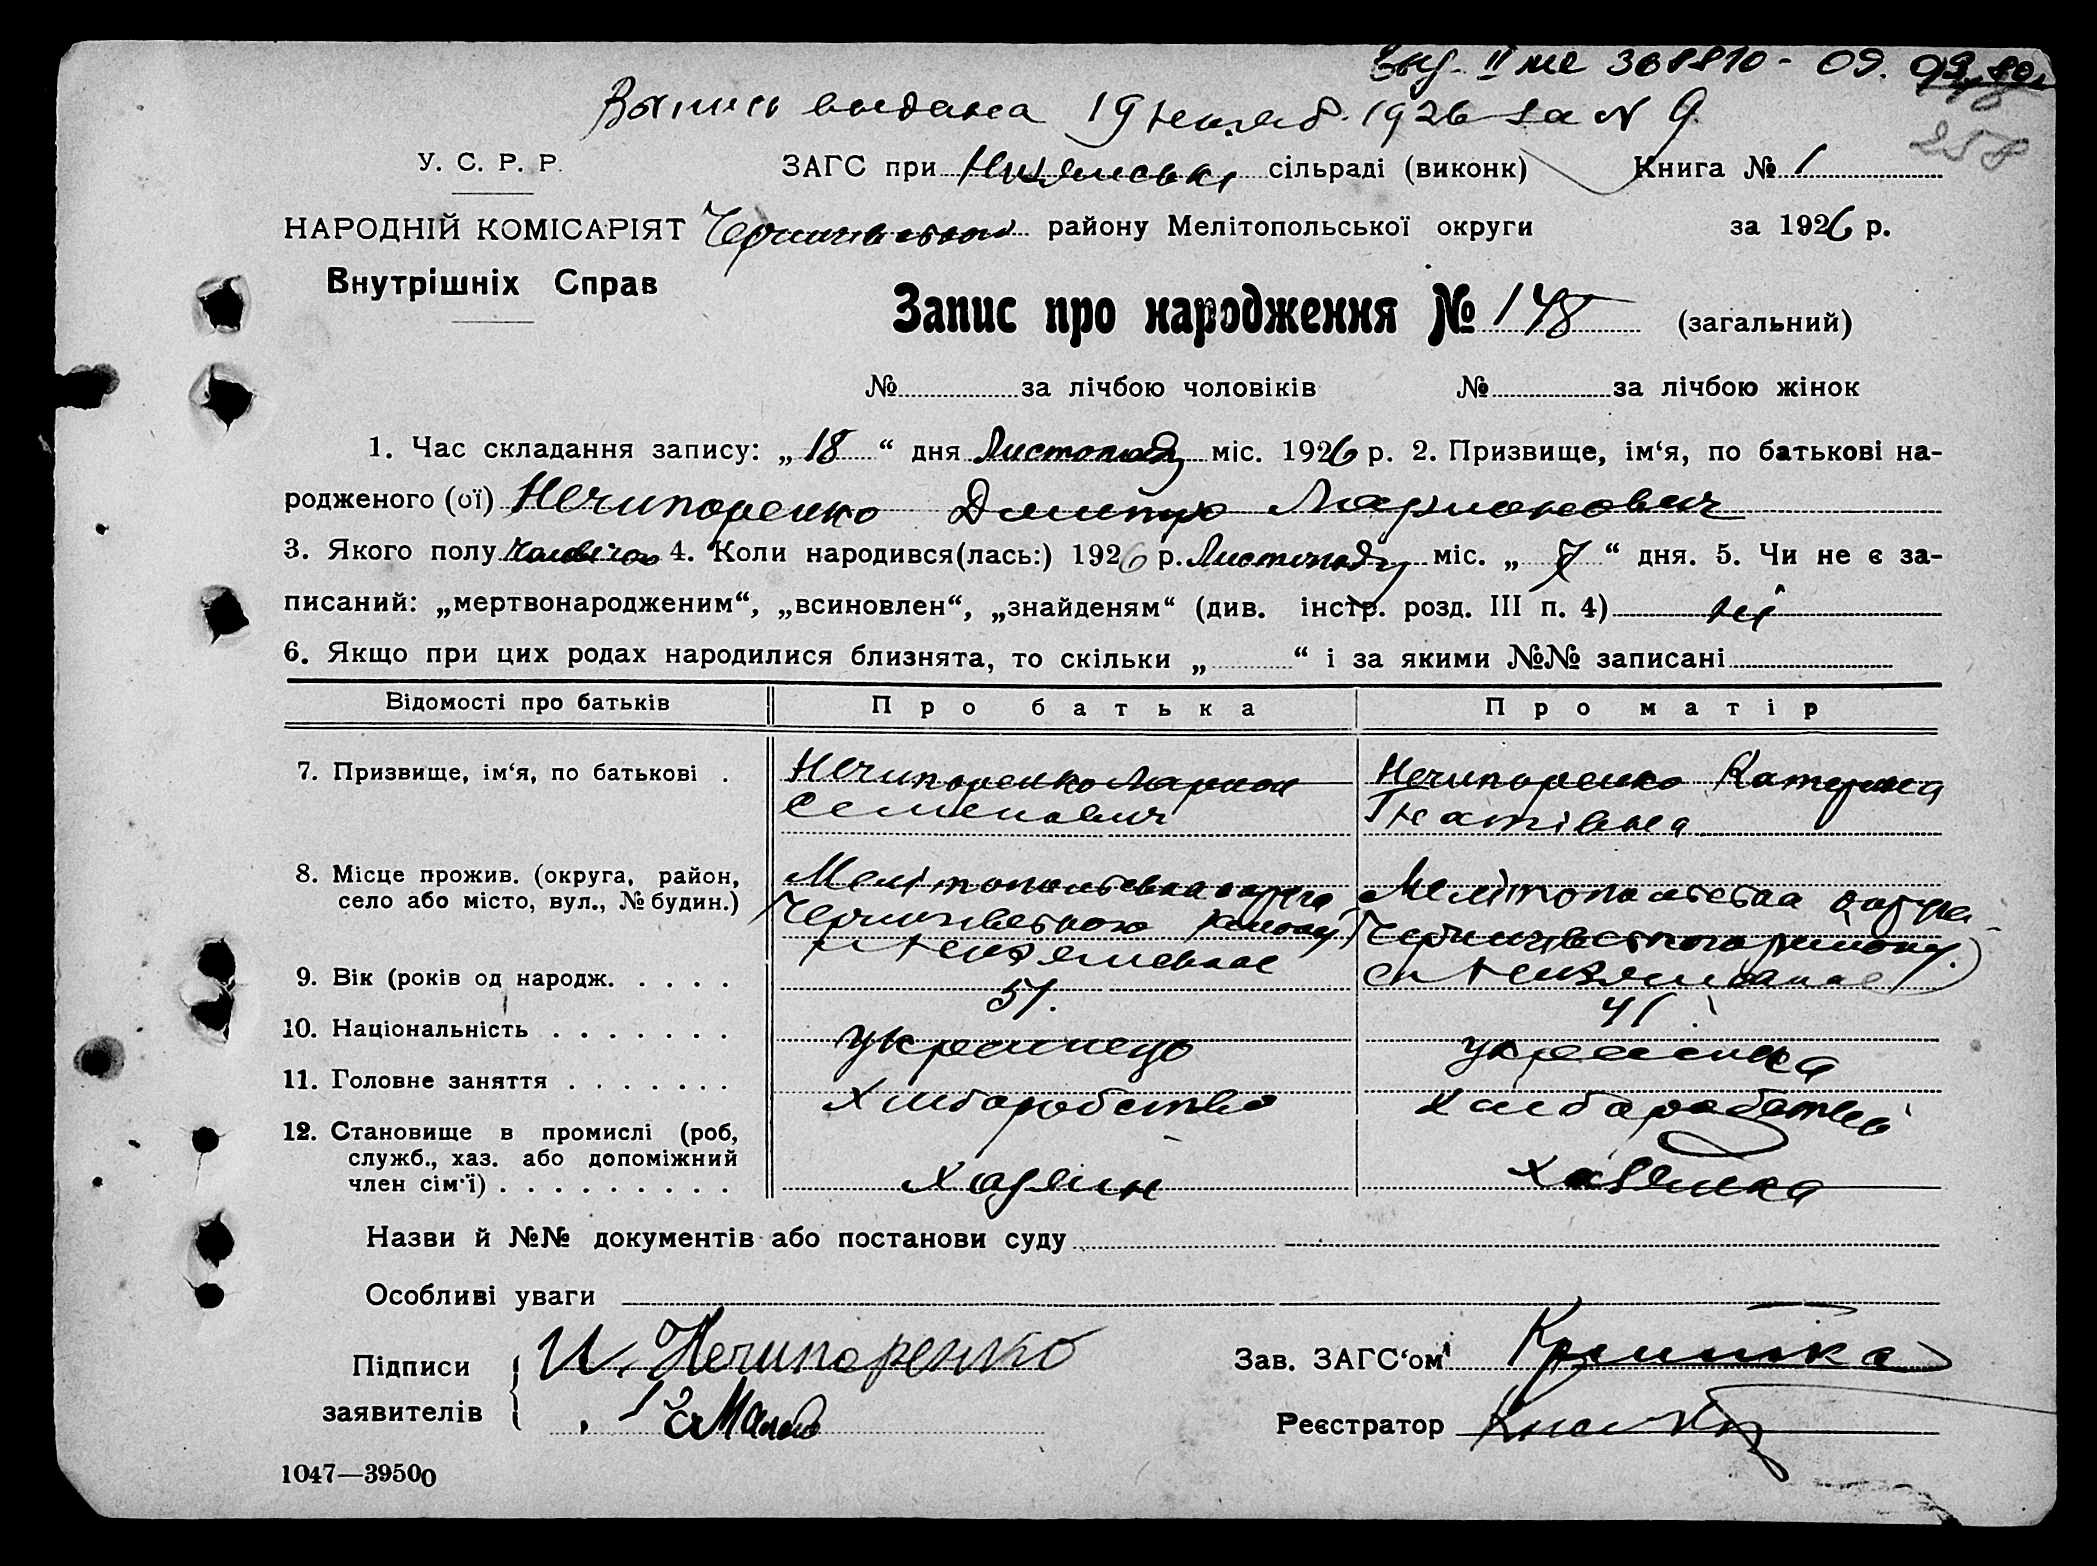 II 368810 - 09.
Выпись выдана 19 нояб. 1926 за N 9
258
У. С. Р. Р. ЗАГС при сільраді (виконк) Книга № 1
НАРОДНІЙ КОМІСАРІЯТ району Мелітопольської округи за 1926 р.
Внутрішніх Справ
Запис про народження № 148 (загальний)
№ за лічбою чоловіків № за лічбою жінок
1. Час складання запису: „ 18 “ дня Листопаду міс. 1926 р. 2. Призвище, ім‘я, по батькові на-
родженого (ої) Нечипоренко Дмитро Марионович
3. Якого полу 4. Коли народився(лась:) 1926 р. Листопаду міс. „ 7 “ дня. 5. Чи не є за-
писаний: „мертвонародженим“, „всиновлен“, „знайденям“ (див. інстр. розд. III п. 4) ні
6. Якщо при цих родах народилися близнята, то скільки „ “ і за якими №№ записані
Відомості про батьків Про батька Про матір
7. Призвище, ім‘я, по батькові . Нечипоренко Марион Нечипоренко Катерина
Семенович Гнатівна
8. Місце прожив. (округа, район, Мелітопольська округа Мелітопольська округа
село або місто, вул., № будин.) району району
9. Вік (років од народж. . . . . 51. 41.
10. Національність . . . . . . . українець українка
11. Головне заняття . . . . . . . Хліборобство
12. Становище в промислі (роб,
служб., хаз. або допоміжний Хазяїн Хазяйка
член сім‘ї) . . . . . . . . .
Назви й №№ документів або постанови суду
Особливі уваги
Підписи И. Нечипоренко Зав. ЗАГС‘ом
заявителів Реєстратор
1047—39500